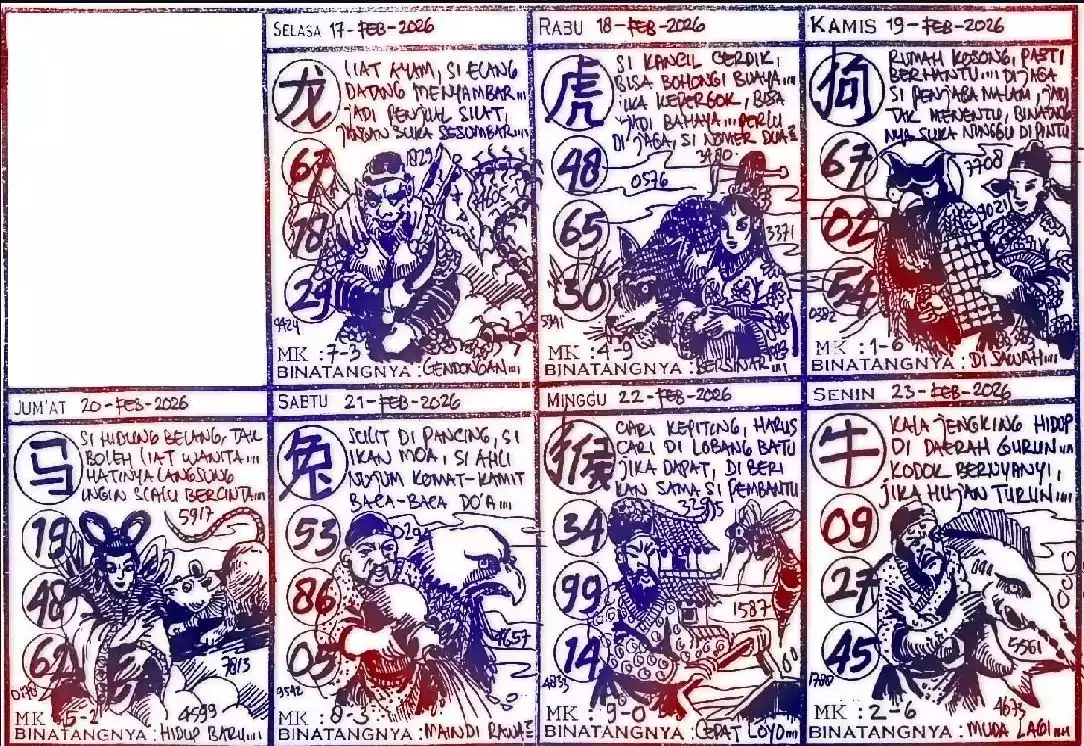 SELASA 17-FEB-2026
龙
LIAT AYAM, SI ELANG
DATANG MENYAMBAR....
JADI PENJUAL SILAT,
JANGAN SUKA SESUMBAR....
67
78
29
1829
9424
MK : 7-3
BINATANGNYA : GENDONGAN....
RABU 18-FEB-2026
虎
SI KANCIL CERDIK,
BISA BOHONGI BUAYA....
JIKA KEPERGOK, BISA
JADI BAHAYA... PERLU
DI JAGA, SI NOMER DUA
48
65
30
3480
0576
3371
5341
MK : 4-9
BINATANGNYA : BERSINAR....
KAMIS 19-FEB-2026
狗
RUMAH KOSONG, PASTI
BERHANTU.... DI JAGA
SI PENJAGA MALAM, JADI
TAK MENENTU, BINATANG
NYA SUKA NUNGGU DI PINTU
67
02
54
3708
9021
0382
MK : 1-6
BINATANGNYA : DI SAWAH....
JUM'AT 20-FEB-2026
马
SI HIDUNG BELANG, TAK
BOLEH LIAT WANITA....
HATINYA LANGSUNG
INGIN SLALU BERCINTA....
19
48
62
5917
7815
4593
MK : 5-2
BINATANGNYA : HIDUP BARU....
SABTU 21-FEB-2026
兔
SULIT DI PANCING, SI
IKAN MOA, SI AHLI
NUJUM KOMAT-KAMIT
BACA-BACA DO'A....
53
86
05
0294
4657
9542
MK : 8-3
BINATANGNYA : MAINDI RAWA
MINGGU 22-FEB-2026
猴
CARI KEPITING, HARUS
CARI DI LOBANG BATU
JIKA DAPAT, DI BERI
KAN SAMA SI PEMBANTU
34
99
14
1587
4833
MK : 9-0
BINATANGNYA : CEPAT LOYO....
SENIN 23-FEB-2026
牛
KALA JENGKING HIDUP
DI DAERAH GURUN....
KODOK BERNYANYI,
JIKA HUJAN TURUN....
09
27
45
5561
1780
4673
MK : 2-6
BINATANGNYA : MUDA LAGI....